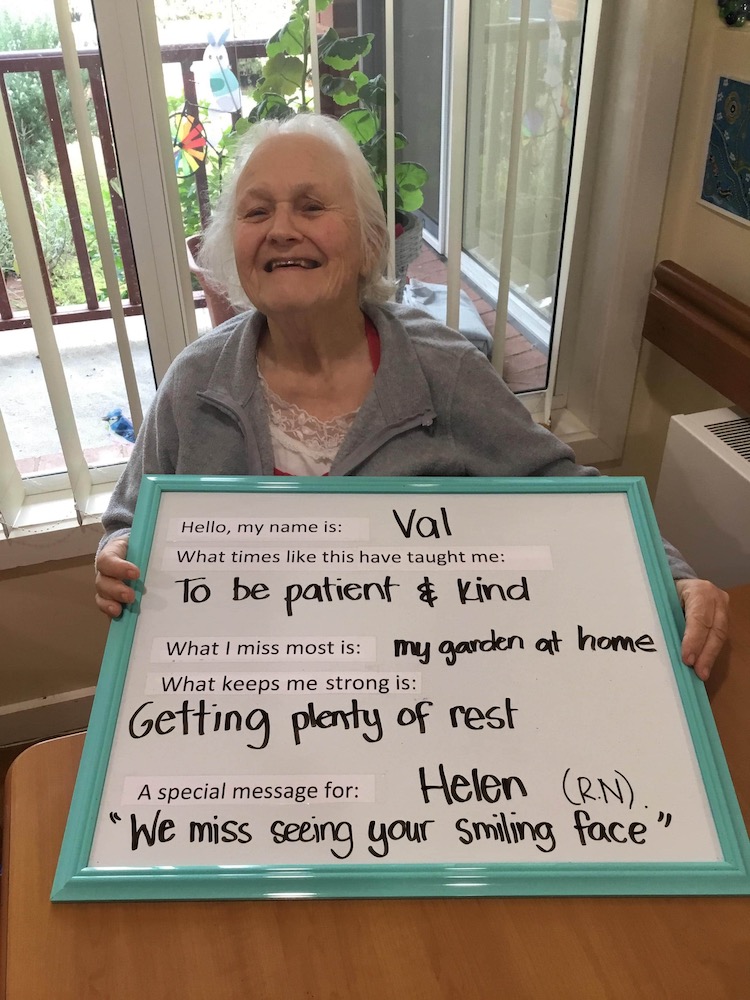 Hello, my name is: Val
What times like this have taught me:
To be patient & kind
What I miss most is: my garden at home
What keeps me strong is:
Getting plenty of rest
A special message for: Helen (R.N).
"We miss seeing your smiling face"